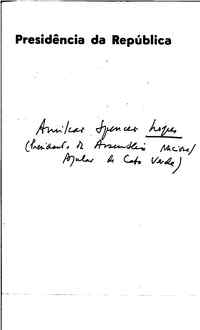 Presidência da República
Amilcar Spencer Lopes
(Presidente da Assembleia Nacional
Popular de Cabo Verde)